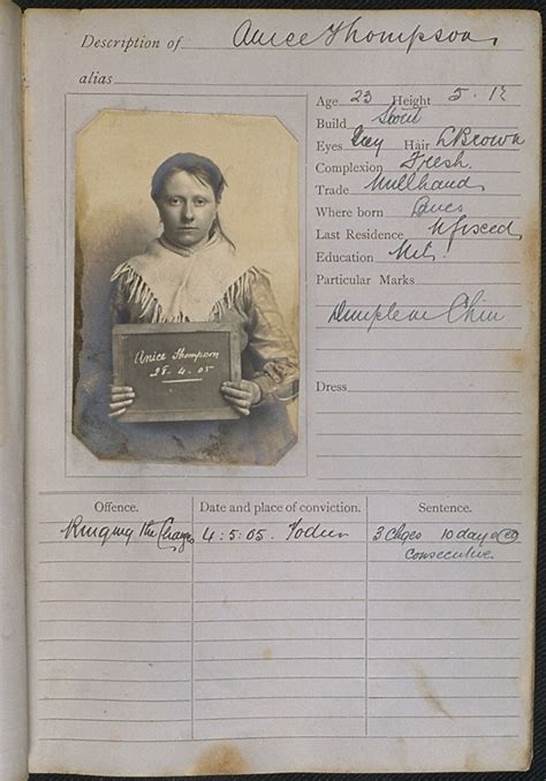 Description of Anice Thompson
alias
Age 23 Height 5. 1½
Build Stout
Eyes Grey Hair L Brown
Complexion Fresh.
Trade Millhand
Where born
Last Residence N fixed
Education
Particular Marks
Dimple on Chin
Anice Thompson
28. 4. 05
Dress
Offence. Date and place of conviction. Sentence.
Ringing the Changes 4:5:05. Todm 3 Chges 10 days ea
Consecutive